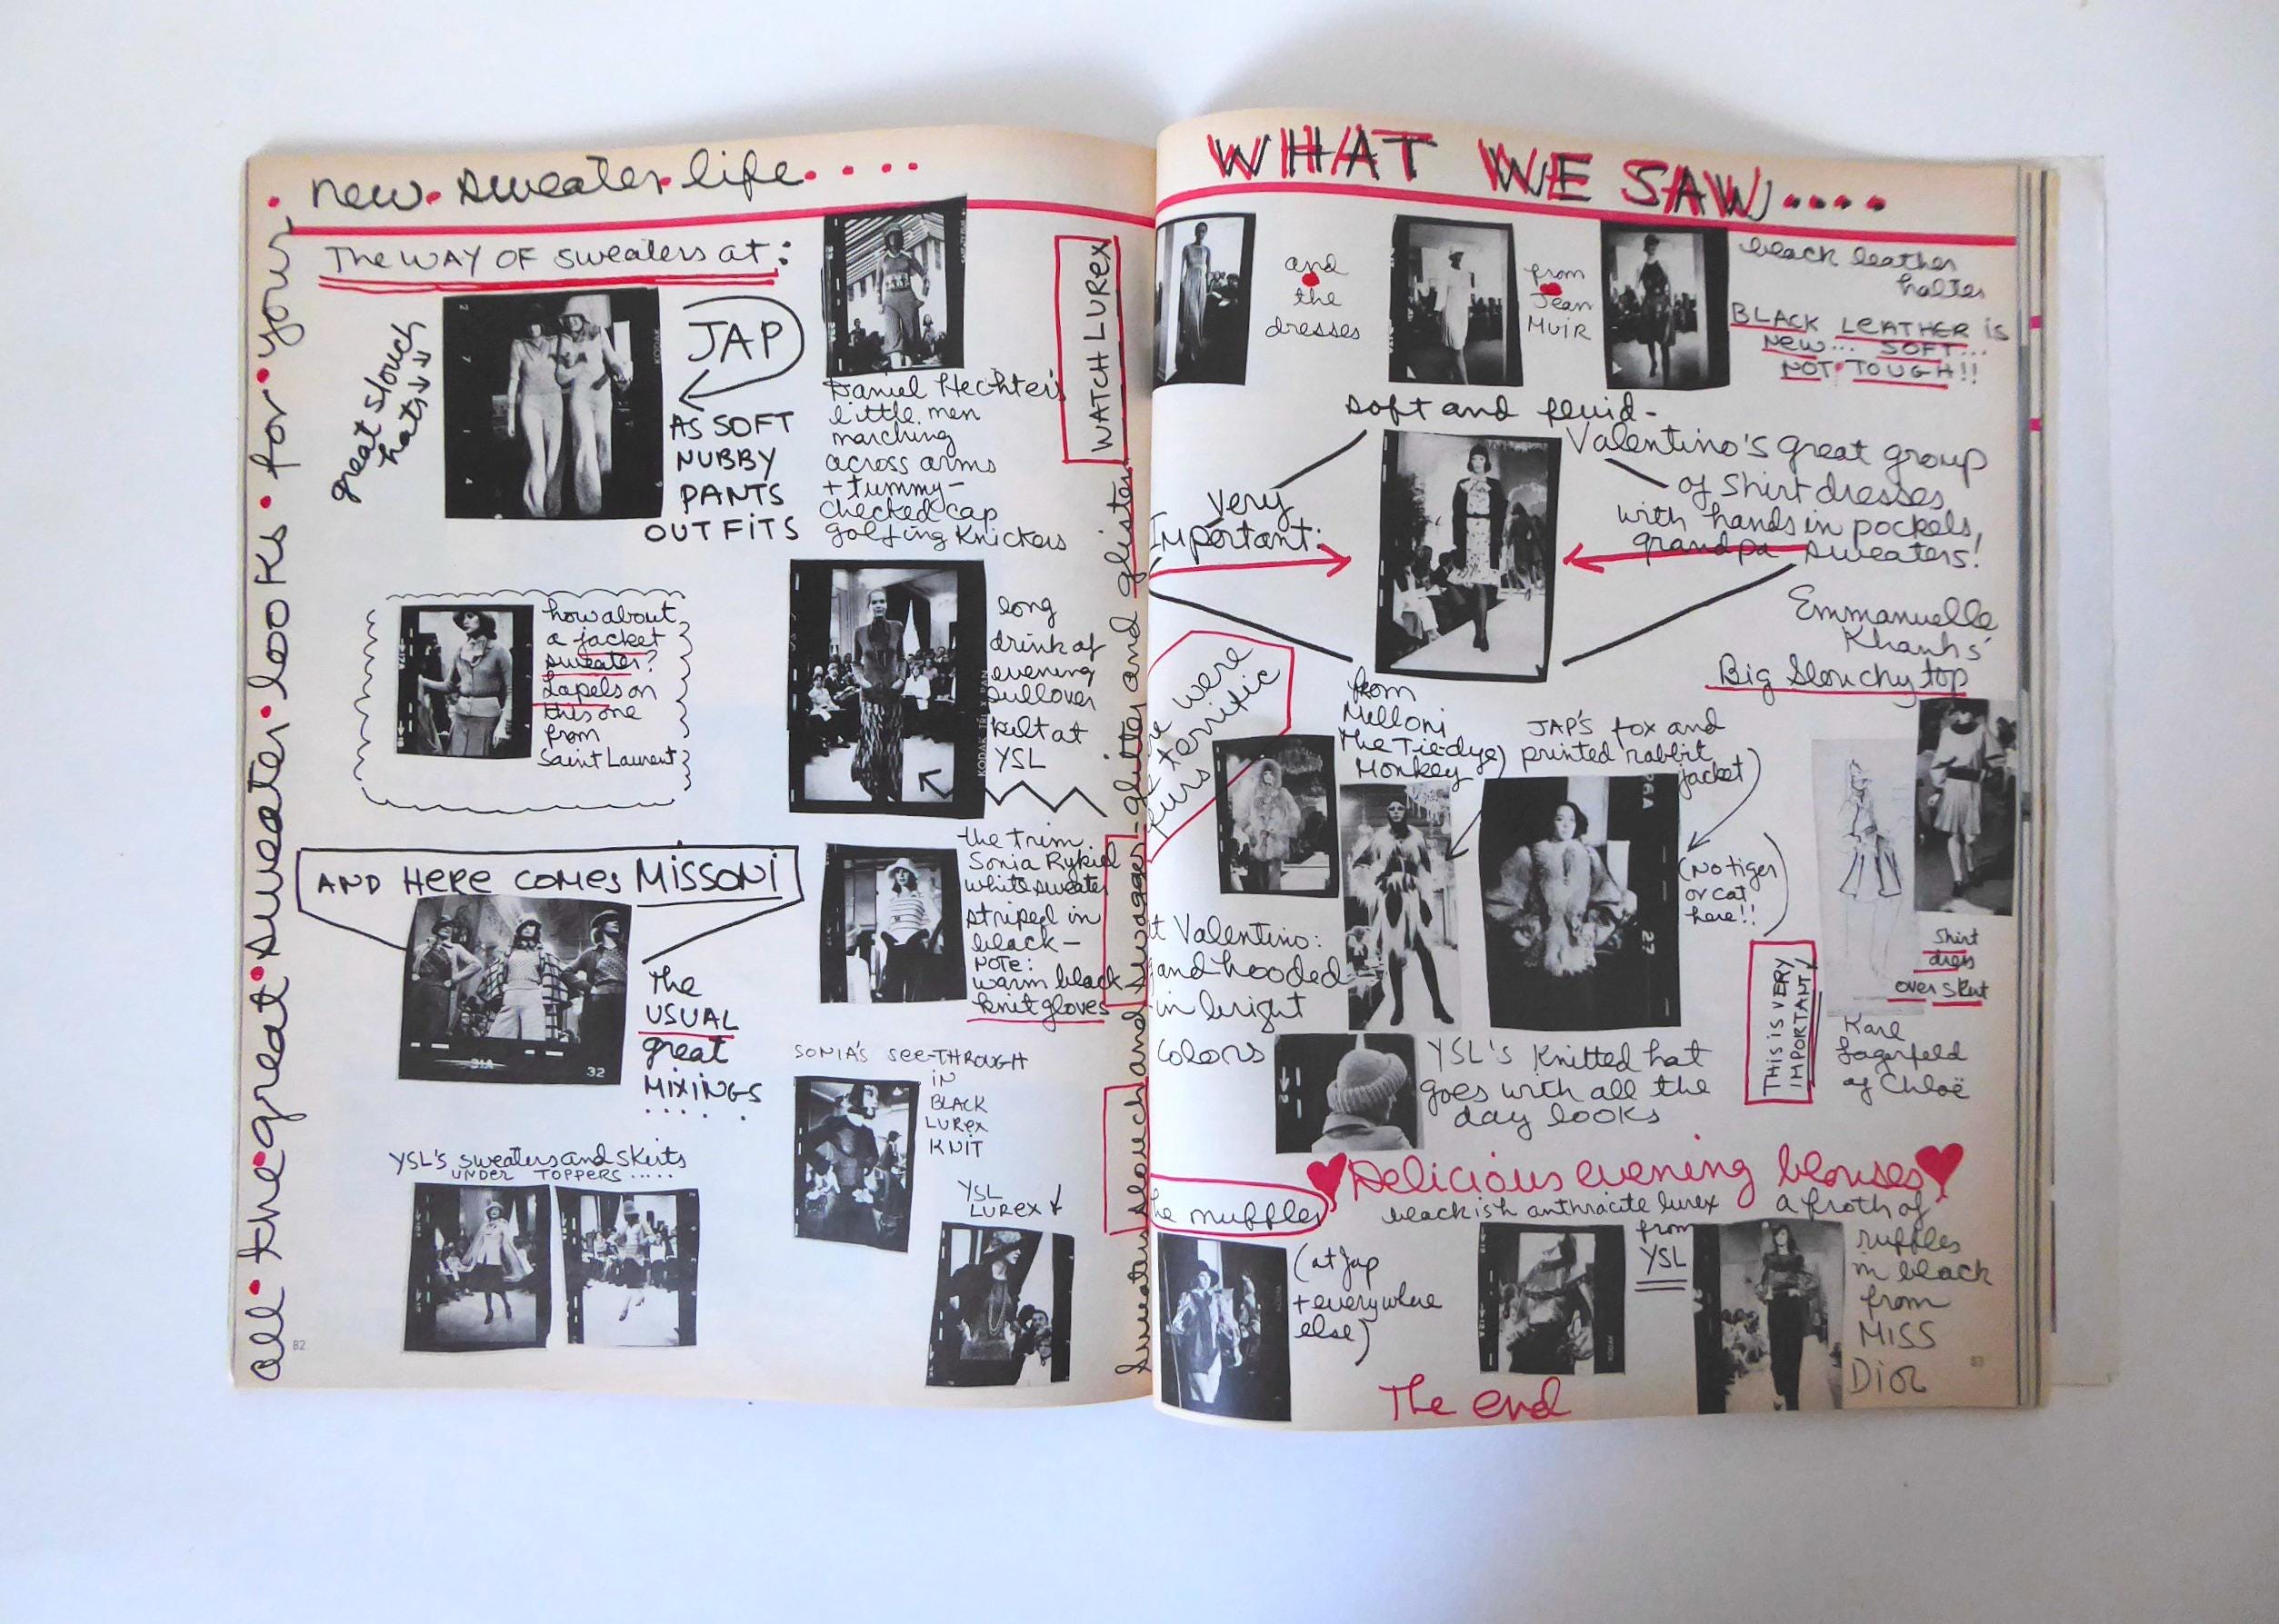 all•the•great•sweater•looks•for•your•
new•sweater•life.....
The WAY OF sweaters at:
great slouch
hats
JAP
AS SOFT
NUBBY
PANTS
OUTFITS
Daniel Hechter's
little men
marching
across arms
+ tummy-
checked cap
golfing knickers
WATCH LUREX
how about
a jacket
sweater?
Lapels on
this one
from
Saint Laurent
long
drink of
evening
pullover
kilt at
YSL
KODAK TRI X PAN
AND HERE COMES MISSONI
The
USUAL
great
MIXINGS
.....
32
the trim
Sonia Rykiel
white sweater
striped in
black—
NOTE:
warm black
knit gloves
SONIA'S SEE-THROUGH
IN
BLACK
LUREX
KNIT
YSL'S sweaters and skirts
UNDER TOPPERS.....
YSL
LUREX
82
sweaters slouch and swagger-glitter and glisten
WHAT WE SAW....
and
the
dresses
from
Jean
MUIR
black leather
halter
BLACK LEATHER is
NEW... SOFT...
NOT•TOUGH!!
soft and fluid-
Valentino's great group
of Shirt dresses
with hands in pockets,
grandpa sweaters!
very
Important:
Emmanuelle
Khanhs'
Big Slouchy top
were
terrific
furs
from
Melloni
the Tie-dye
Monkey)
JAP'S fox and
printed rabbit
jacket)
(No tiger
or cat
here!!)
26A
27
t Valentino:
and hooded
in bright
colors
YSL'S knitted hat
goes with all the
day looks
THIS IS VERY
IMPORTANT!
Shirt
dress
over skirt
Karl
Lagerfeld
of Chloë
Delicious evening blouses
he muffler
(at Jap
+ everywhere
else)
blackish anthracite lurex
from
YSL
a froth of
ruffles
in black
from
MISS
DIOR
The end
83